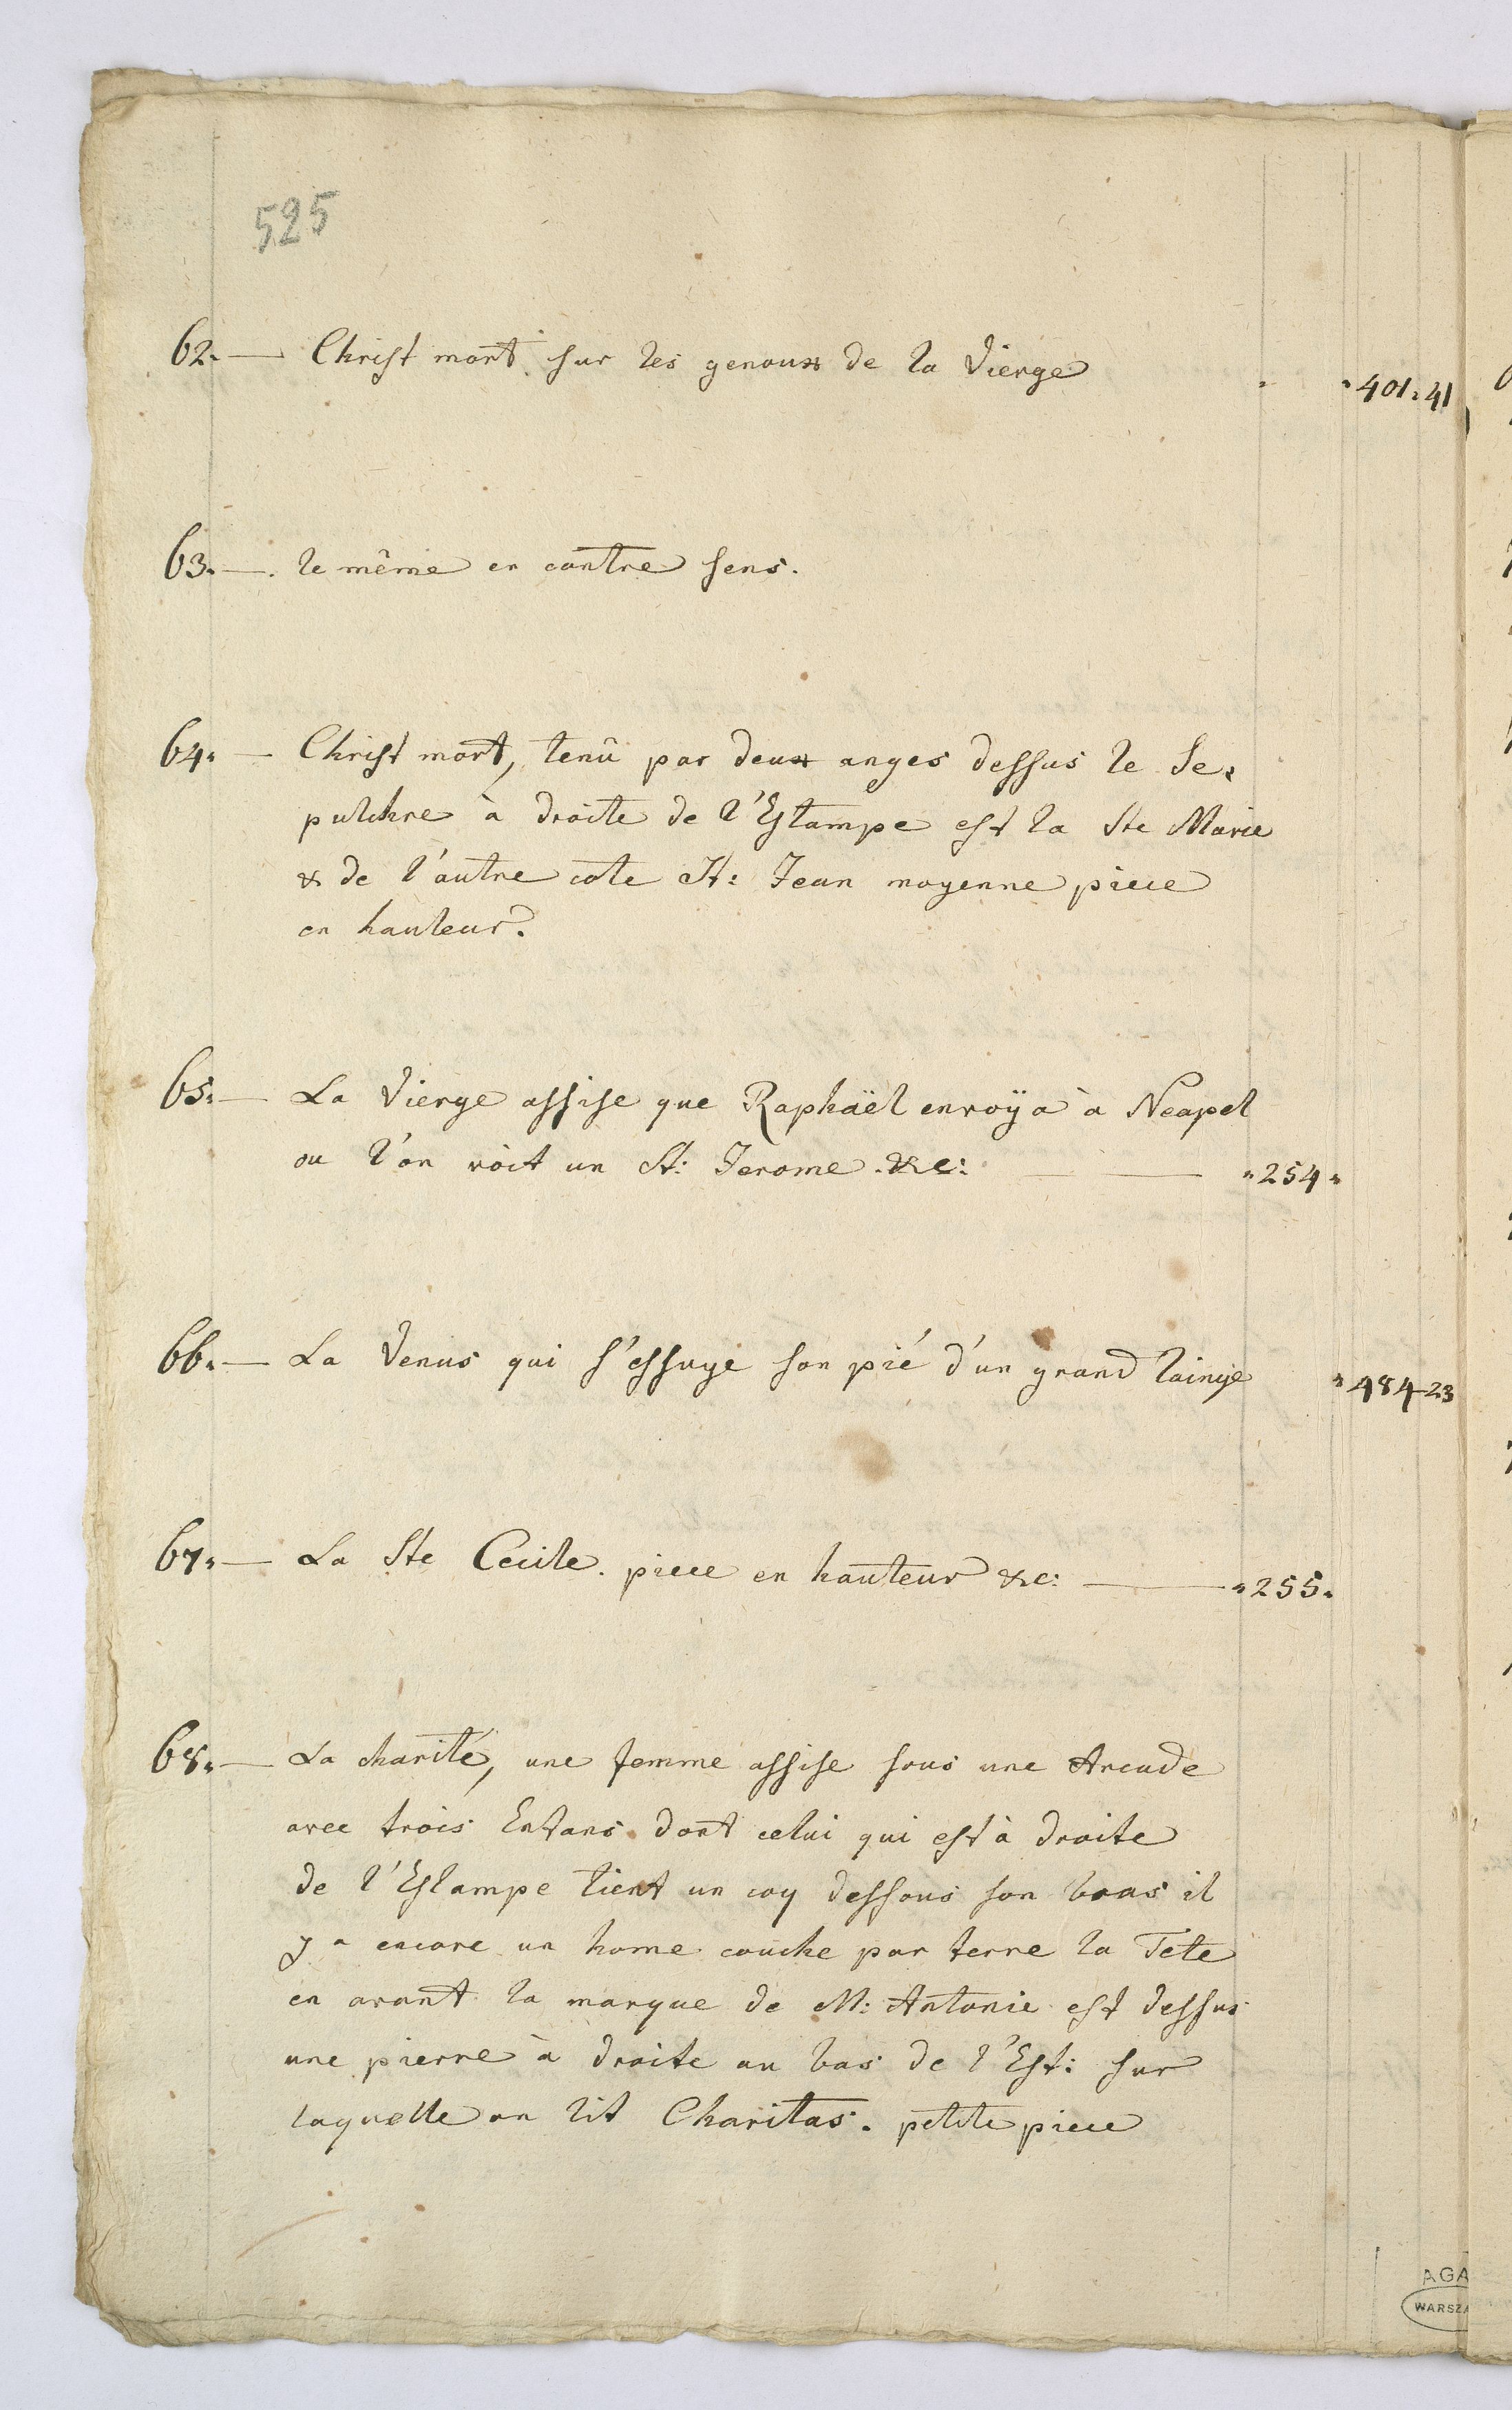 525
62. — Christ mort sur les genoux de la Vierge " " 401. 41
63. — le même en contre sens.
64. — Christ mort, tenû par deux anges dessus le Se,
pulchre à droite de l'Estampe est la Ste Marie
& de l'autre cote St: Jean moyenne piece
en hauteur.
65. — La Vierge assise que Raphäel envoÿa à Neapel
ou l'on voit un St: Jerome. &c: — " 254 "
66. — La Venus qui s'essuye son pié d'un grand lainge " 484 23
67. — La Ste Cecile. piece en hauteur &c: — " 255 "
68. — La charité, une femme assise sous une Arcade
avec trois Enfans. dont celui qui est à droite
de l'Estampe tient un coq dessous son bras il
y a encore un home couche par terre la Tete
en avant la marque de M: Antonie est dessus
une pierre à droite au bas de l'Est: sur
laquelle on lit Charitas. petite piece
AGA
WARSZA